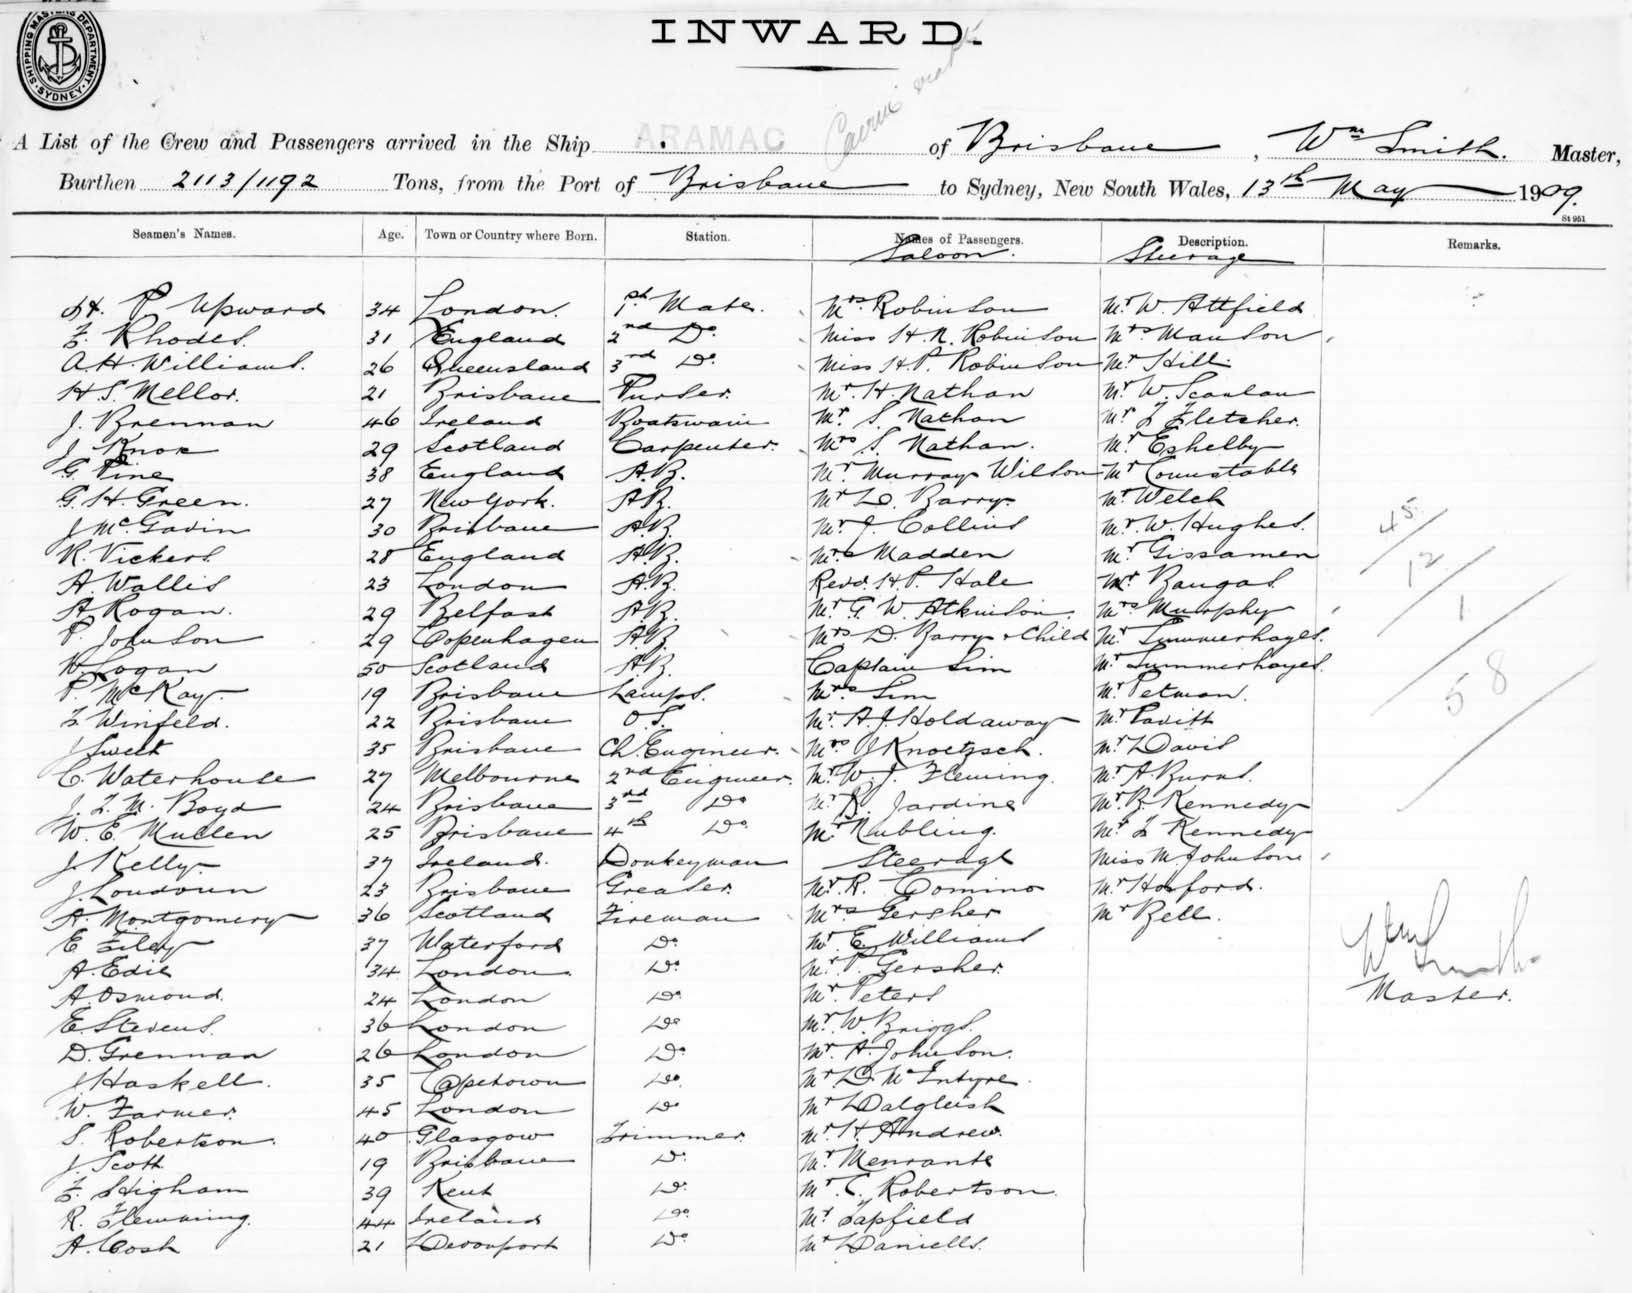 SHIPPING MASTERS DEPARTMENT
SYDNEY
INWARD.
A List of the Crew and Passengers arrived in the Ship ARAMAC of Brisbane, Wm Smith. Master,
Burthen 2113/1192 Tons, from the Port of Brisbane to Sydney, New South Wales, 13th May 1909.
St 951
Seamen's Names. Age. Town or Country where Born. Station. Names of Passengers. Description. Remarks.
Saloon. Steerage
P Upward 34 London. 1st Mate. Mrs Robinson Mr. W. Attfield
F. Rhodes. 31 England 2nd Do. Miss H. N. Robinson Mrs Manson
A. H. Williams. 26 Queensland 3rd Do. Miss H. P. Robinson Mr Hill
H. S. Mellor. 21 Brisbane Purser. Mr. H. Nathan Mr. W. Scanlan
J. Brennan 46 Ireland Boatswain Mr. S. Nathan Mr F Fletcher.
J. Knox 29 Scotland Carpenter. Mrs S. Nathan. Mr Eshelby
G. Pine 38 England A.B. Mr. Murray Wilson Mr Counstable
G. H. Green. 27 New York. A.B. Mr D. Barry. Mr Welch
J McGavin 30 Brisbane A.B. Mr J. Collins Mr. W. Hughes.
R. Vickers. 28 England A.B. Mrs Madden Mr Gissamen
A. Wallis 23 London A.B. Revd. H. P. Hale Mr Baugas.
A. Rogan. 29 Belfast A.B. Mr. G. W. Atkinson. Mrs Murphy
P. Johnson 29 Copenhagen A.B. Mrs D. Barry & Child Mr. Summerhayes.
W Logan 50 Scotland A.B. Captain Sim Mr. Summerhayes.
P. McKay 19 Brisbane Lamps. Mrs Sim Mr Petman.
F Winfeld. 22 Brisbane O.S. Mr. A. J. Holdaway Mr Pavitt
J Sweet 35 Brisbane Ch. Engineer. Mrs J Knoetzsch. Mr David
C. Waterhouse 27 Melbourne 2nd Engineer. Mr. W. J. Fleming. Mr A Burns.
J. F. M. Boyd 24 Brisbane 3rd Do Mr R. Jardine Mr. B. Kennedy
W. E. Mullen 25 Brisbane 4th Do. Mr. Nubling. Mr F Kennedy
J. Kelly. 37 Ireland. Donkeyman Steerage Miss M. Johnson
J. Loudoun 23 Brisbane Greaser. Mr. R. Comino Mr. Hosford.
A. Montgomery 36 Scotland Fireman Mrs Gersher Mr Bell.
E Filey 37 Waterford Do. Mr. E. Williams
A. Edie 34 London. Do. Mr. P. Gersher.
A. Osmond. 24 London Do. Mr. Peters
E. Stevens. 36 London Do Mr. W. Briggs.
D. Grennan 26 London Do. Mr. A. Johnson.
J Haskell. 35 Capetown Do. Mr D. McIntyre.
W. Farmer. 45 London Do Mr Dalgleish
S. Robertson. 40 Glasgow Trimmer. Mr. H. Andrew.
J. Scott 19 Brisbane Do. Mr. Menrante
F. Higham 39 Kent Do. Mr. C. Robertson.
R. Flemming. 44 Ireland Do. Mr Tapfield
A. Cosh 21 Devonport Do. Mr Daniells.
45
12
1
58
Wm Smith
Master.